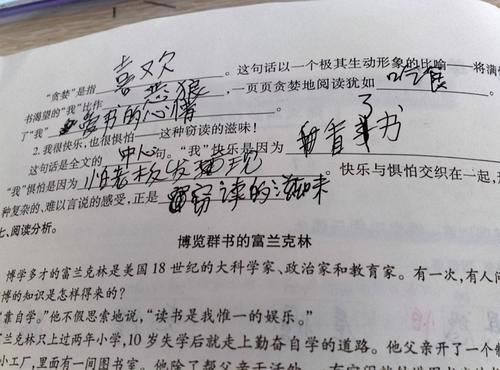 "贪婪"是指 喜欢 。这句话以一个极其生动形象的比喻——将满
书渴望的"我"比作 恶狼 ,一页页贪婪地阅读犹如 吃食
了"我" 爱书的心情
2. 我很快乐,也很惧怕——这种窃读的滋味!
这句话是全文的 中心 句。"我"快乐是因为 看了书
"我"惧怕是因为 怕老板发现 。快乐与惧怕交织在一起,形
种复杂的、难以言说的感受,正是 窃读的滋味
七、阅读分析。
博览群书的富兰克林
博学多才的富兰克林是美国 18 世纪的大科学家、政治家和教育家。有一次,有人问
博的知识是怎样得来的?
靠自学。"他不假思索地说,"读书是我惟一的娱乐。"
克林只上过两年小学,10 岁失学后就走上勤奋自学的道路。他父亲开了一个
小工厂,里面有一间图书室。他除了帮父亲干活外,